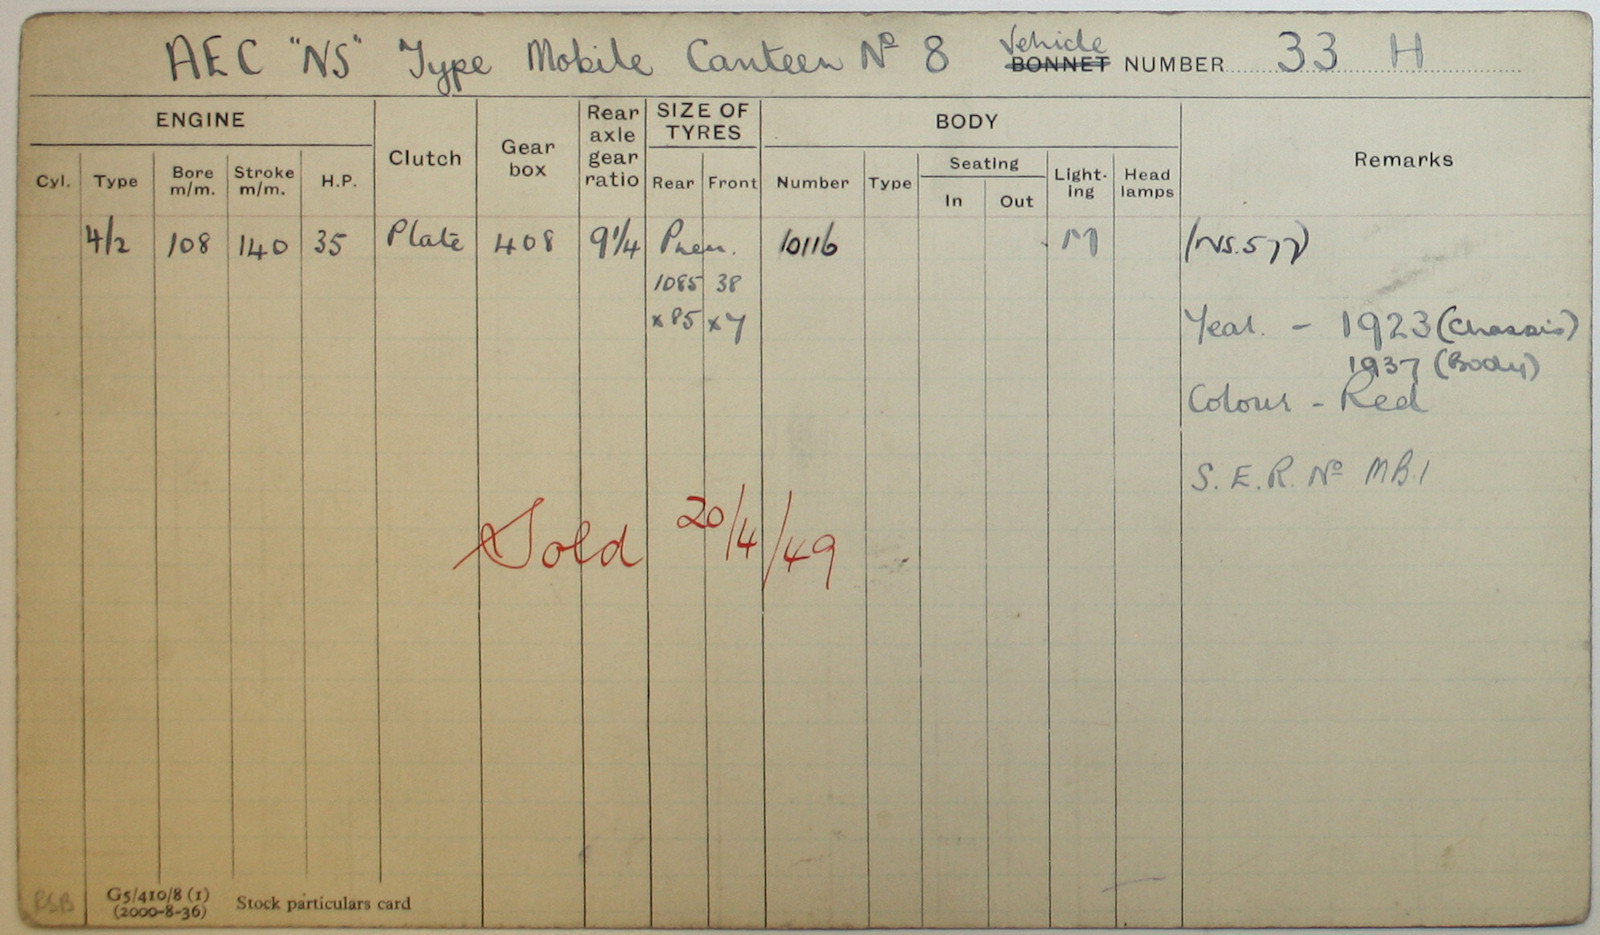 AEC "NS" Type Mobile Canteen Nº 8 Vehicle BONNET NUMBER 33 H
ENGINE Clutch Gear box Rear axle gear ratio SIZE OF TYRES BODY Remarks
Cyl. Type Bore m/m. Stroke m/m. H.P. Rear Front Number Type Seating In Out Light-ing Head lamps
4/2 108 140 35 Plate 408 9¼ Pneu. 10116 M (NS.577)
1085 38
x 85 x 7
Year. - 1923 (Chassis)
1937 (Body)
Colour - Red
S.E.R. Nº MB.1
Sold 20/4/49
RSB
G5/410/8 (1)
(2000-8-36) Stock particulars card